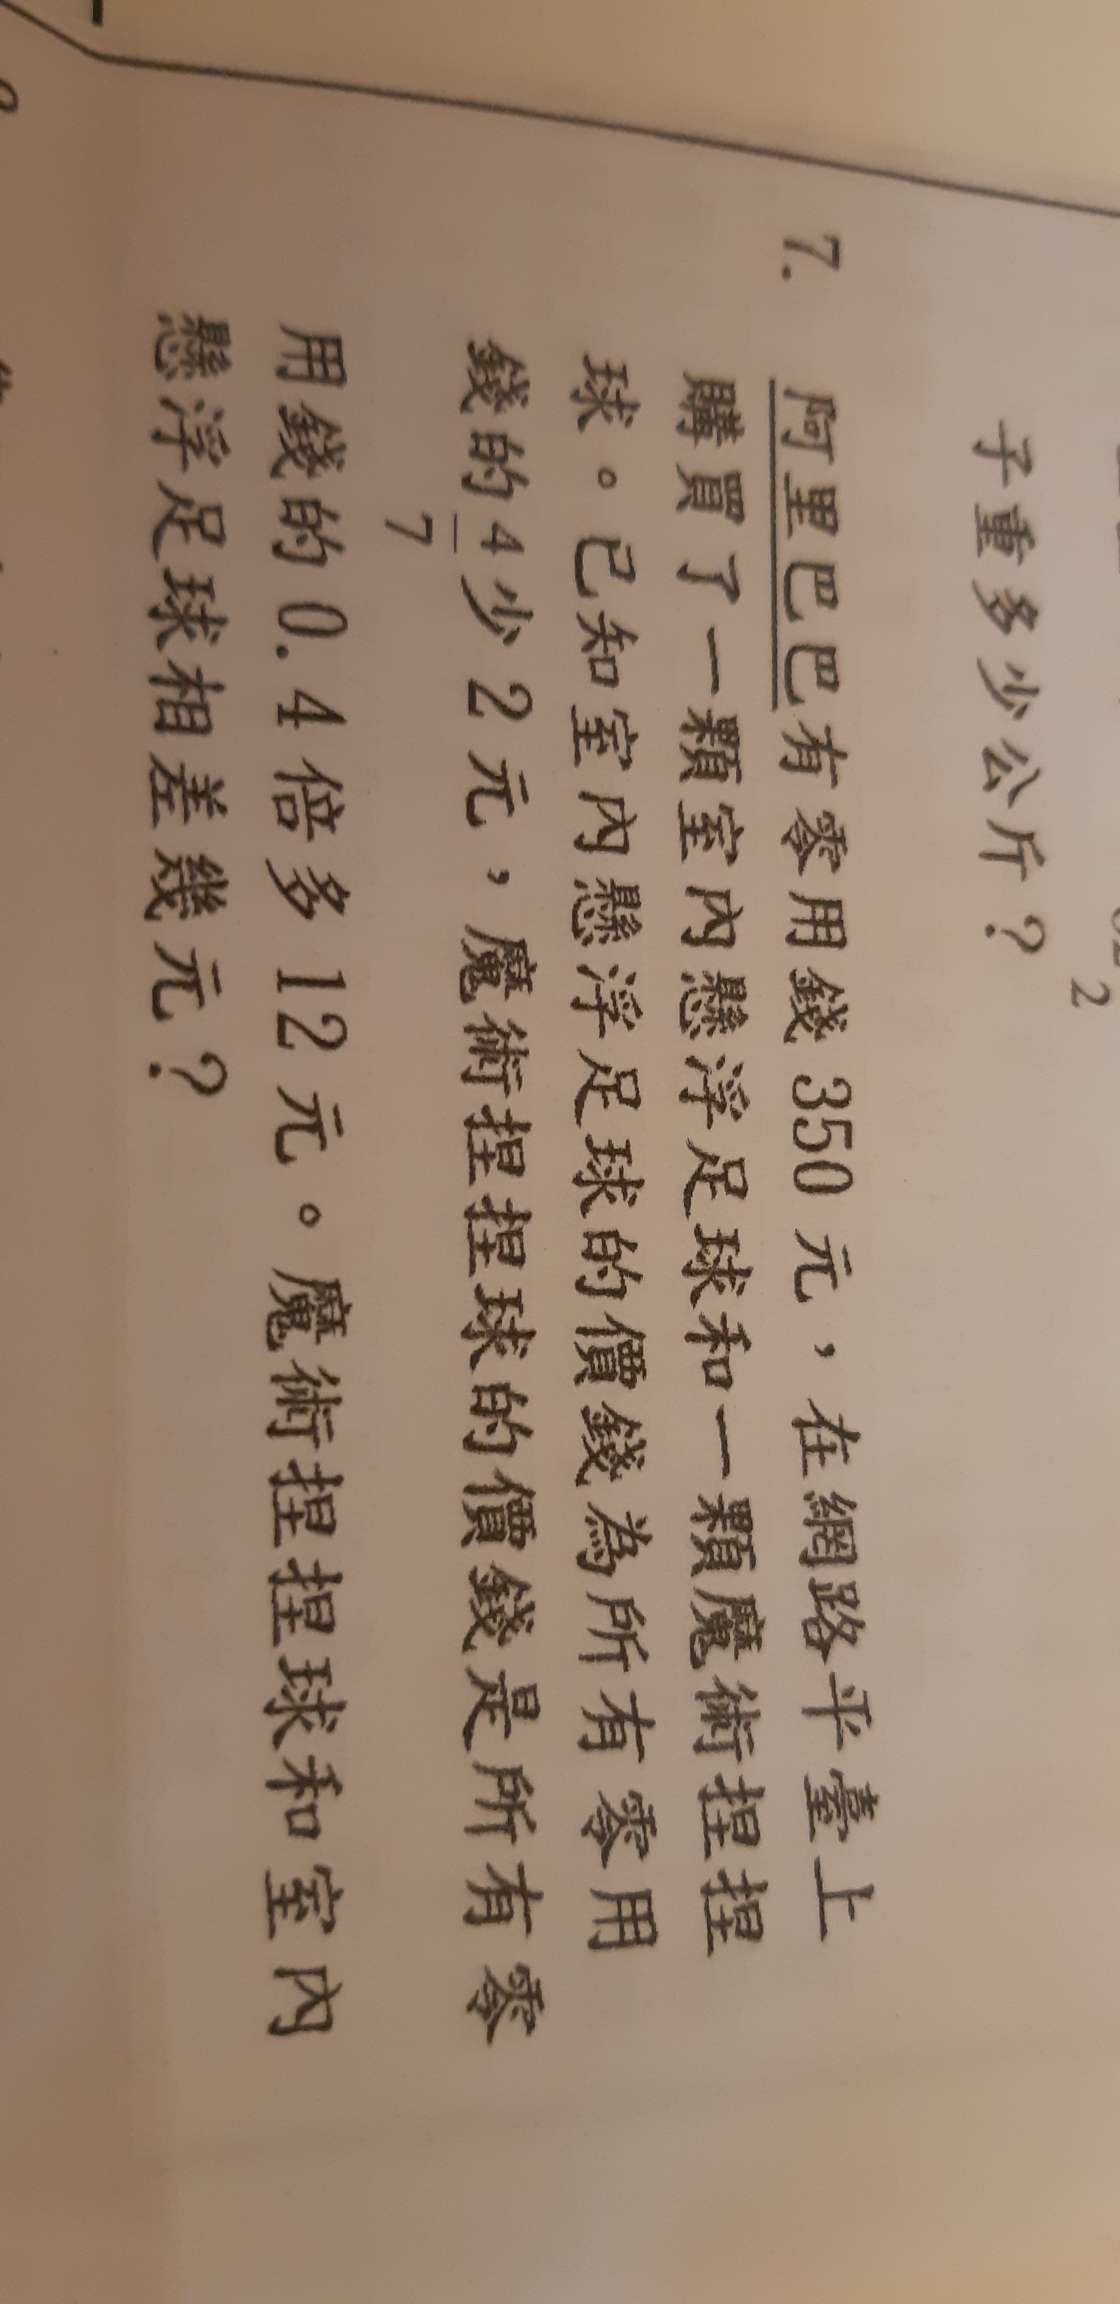 子重多少公斤？
2
7. 阿里巴巴有零用錢 350 元，在網路平臺上
購買了一顆室內懸浮足球和一顆魔術捏捏
球。已知室內懸浮足球的價錢為所有零用
錢的 4/7 少 2 元，魔術捏捏球的價錢是所有零
用錢的 0.4 倍多 12 元。魔術捏捏球和室內
懸浮足球相差幾元？